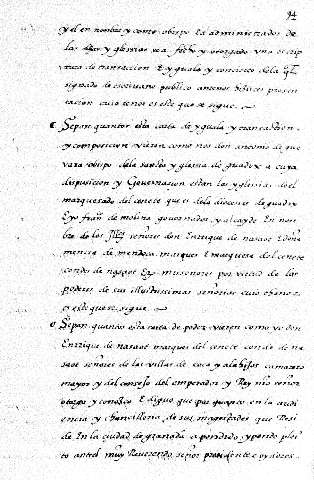 94
y el en nonbre y como obispo E administrador de
las dhas yglesias sea fecho y otorgado una escrip
tura de transacion E yguala y concierto de la ql
signado de escrivano publico antenos hizieron presen
tacion cuio tenor es este que se sigue
Sepan quantos esta carta de yguala y transaction
y composicion vieren como nos don antonio de gue
vara obispo dela sancta yglesia de guadix a cuya
disposicion y Governacion estan las yglesias del
marquesado del cenete ques dela diocesis de guadix
E yo fran de molina governador y alcayde En non
bre de los Illes señores don Enrrique de nasao E doña
mencia de mendoca marques E marquesa del cenete
condes de nasaot Ez mis señores por virtud de los
poderes de sus illustrissimas señorias cuio thenor
es este que se sigue
Sepan quantos esta carta de poder vieren como yo don
Enrrique de nasaot marques del cenete conde de na
saot señor de las villas de coca y alahejos camarero
mayor y del consejo del emperador y Rey nro señor
otorgo y conozco E digo que por quanto en la audi
encia y chancilleria de sus magestades que Resi
de En la ciudad de granada a pendido y pende pley
to antel muy Reverendo señor presidente e oydores